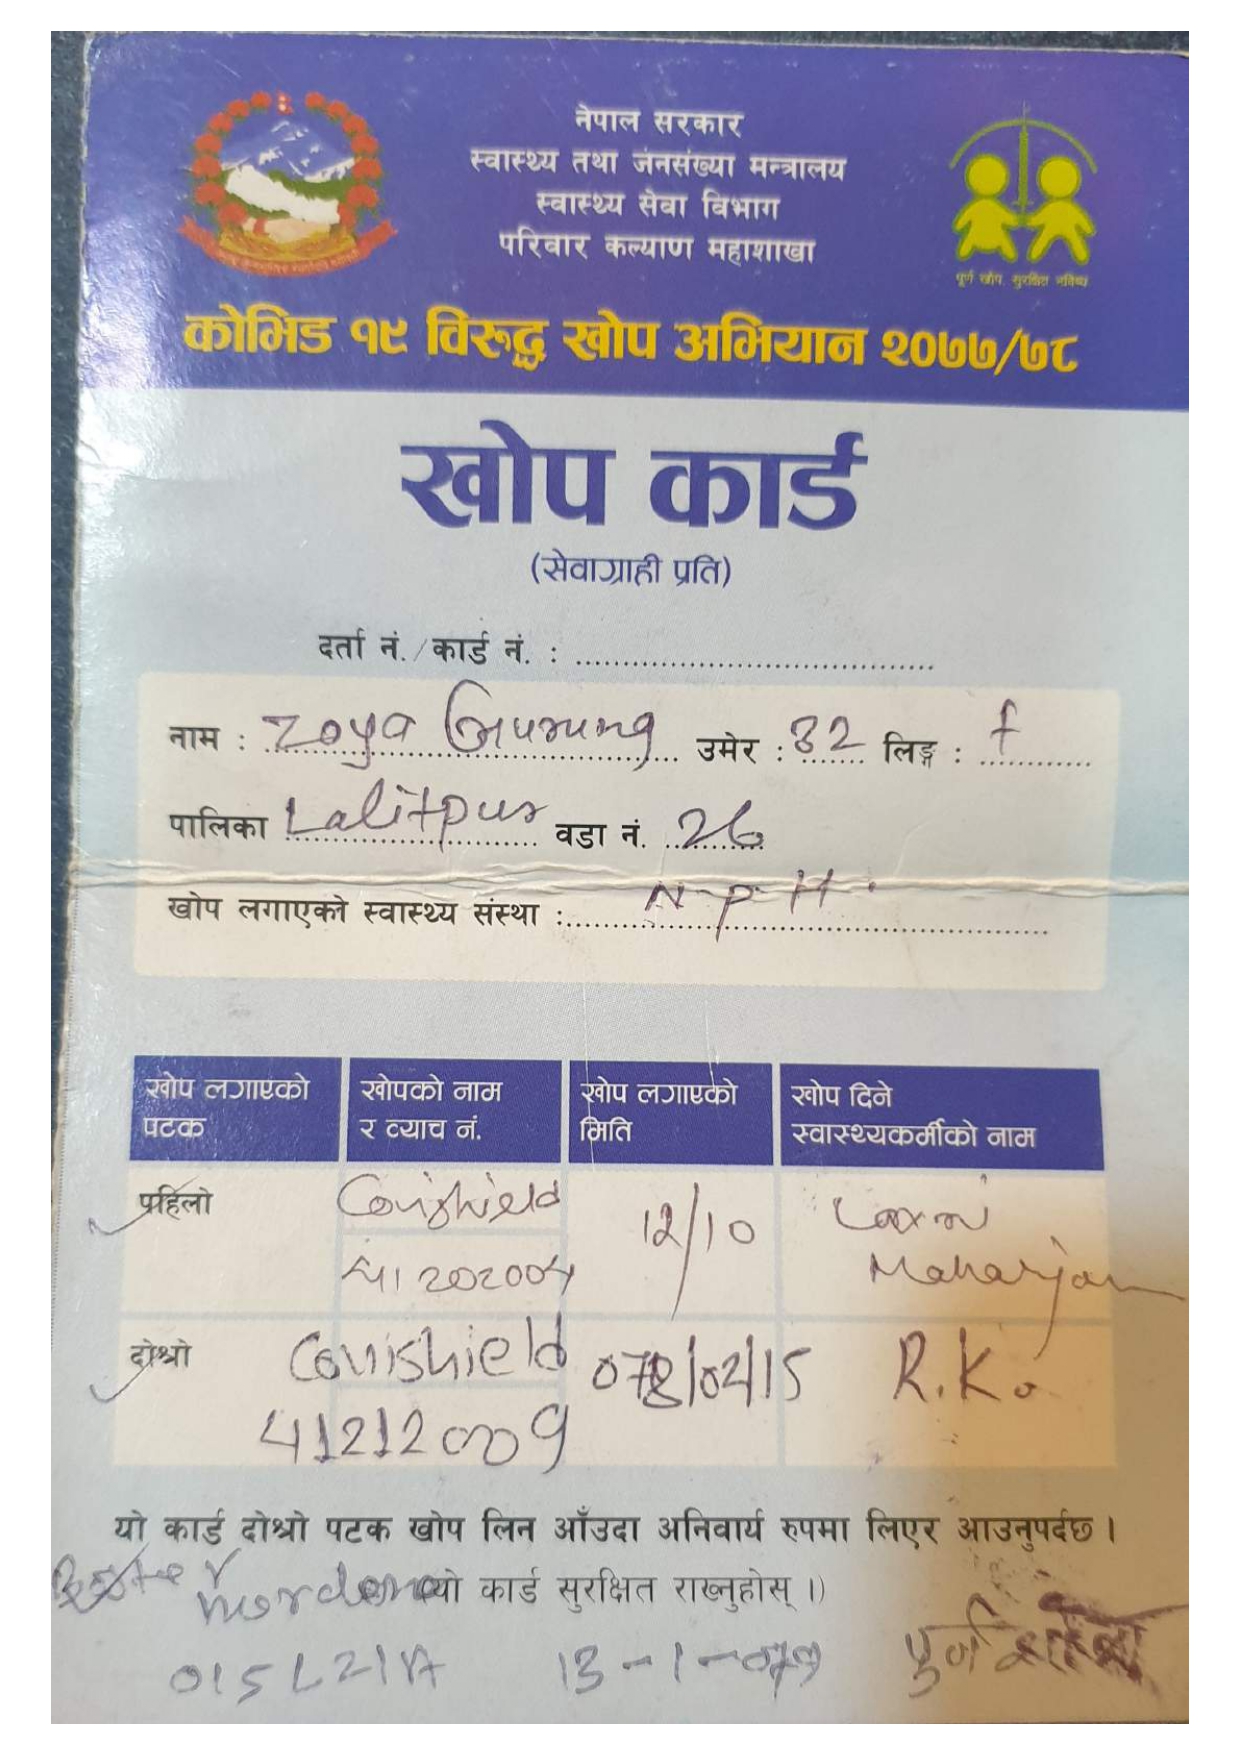 नेपाल सरकार
स्वास्थ्य तथा जनसंख्या मन्त्रालय
स्वास्थ्य सेवा विभाग
परिवार कल्याण महाशाखा
पूर्ण खोप, सुरक्षित भविष्य
कोभिड १९ विरुद्ध खोप अभियान २०७७/७८
खोप कार्ड
(सेवाग्राही प्रति)
दर्ता नं./कार्ड नं. :
नाम : Zoya Gurung उमेर : 32 लिङ्ग : f
पालिका Lalitpur वडा नं. 26
खोप लगाएको स्वास्थ्य संस्था : N P H
खोप लगाएको पटक
खोपको नाम र व्याच नं.
खोप लगाएको मिति
खोप दिने स्वास्थ्यकर्मीको नाम
पहिलो Covishield 12/10 Laxmi Maharjan
दोश्रो Covishield 078/02/15 R.K.
यो कार्ड दोश्रो पटक खोप लिन आँउदा अनिवार्य रुपमा लिएर आउनुपर्दछ ।
यो कार्ड सुरक्षित राख्नुहोस् ।)
015L21A पूर्ण